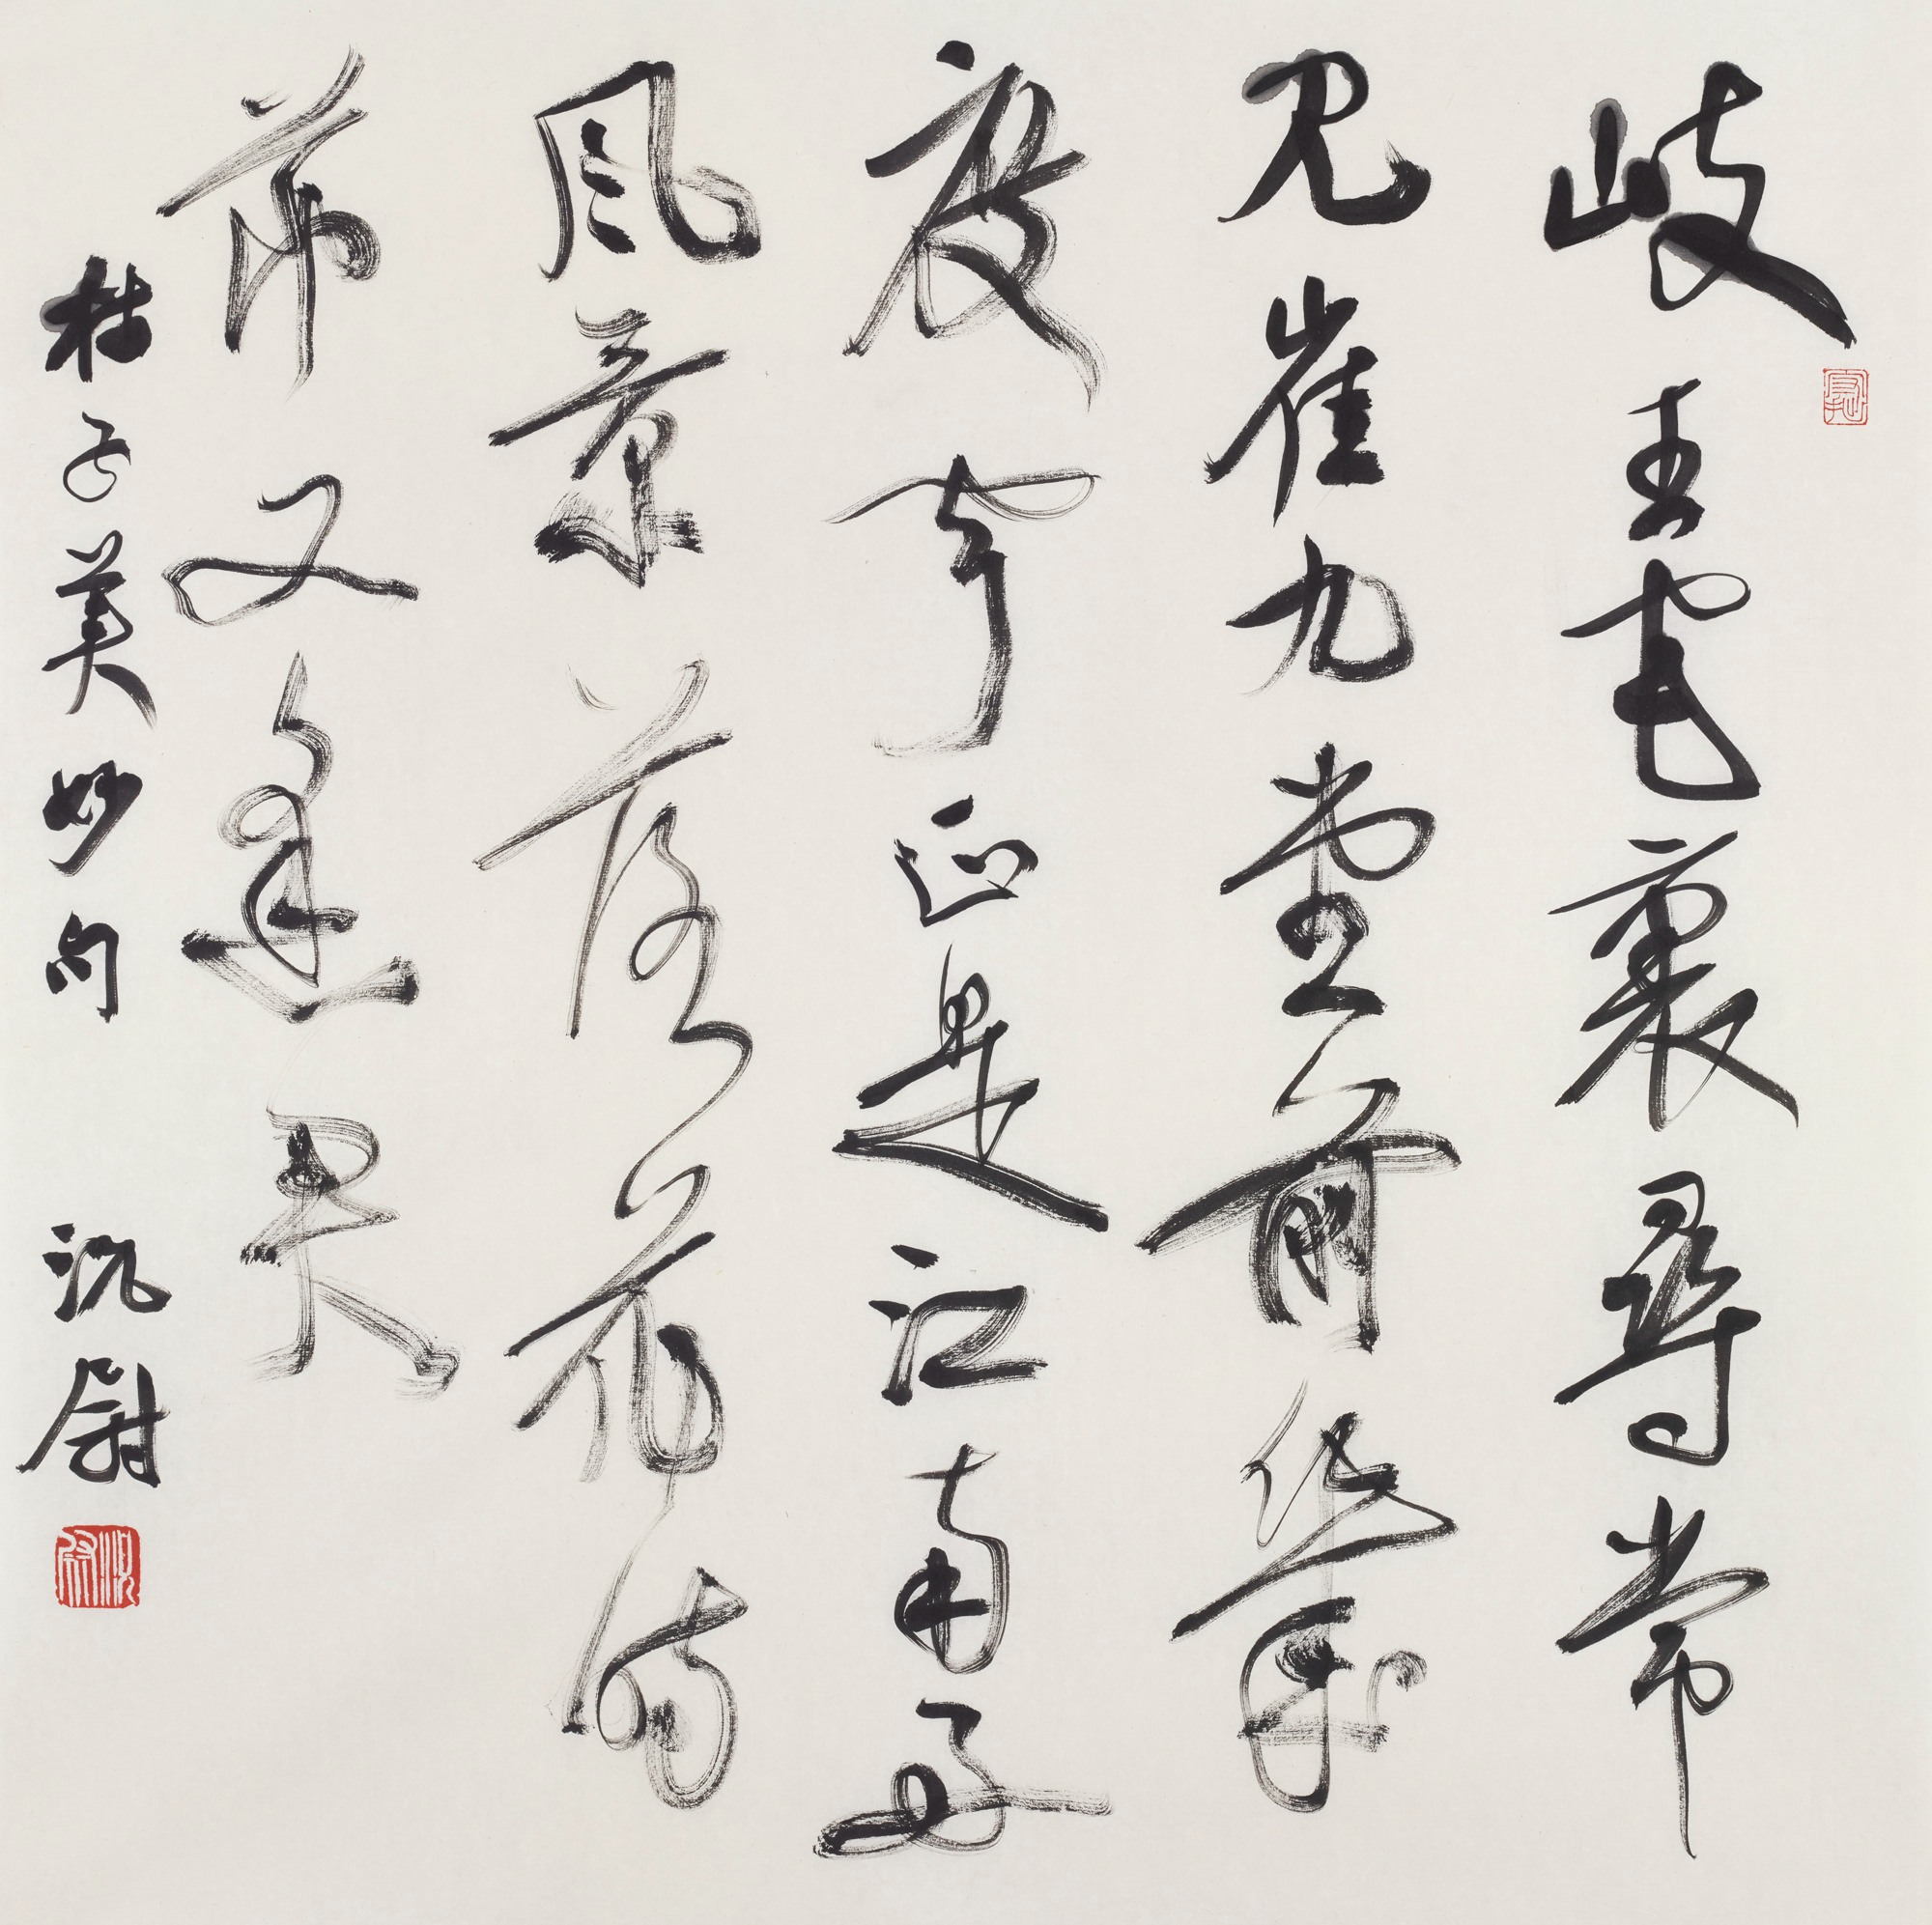 岐王宅裏尋常
見崔九堂前幾
度聞正是江南好
風景落花時
節又逢君
杜子美妙句 況尉